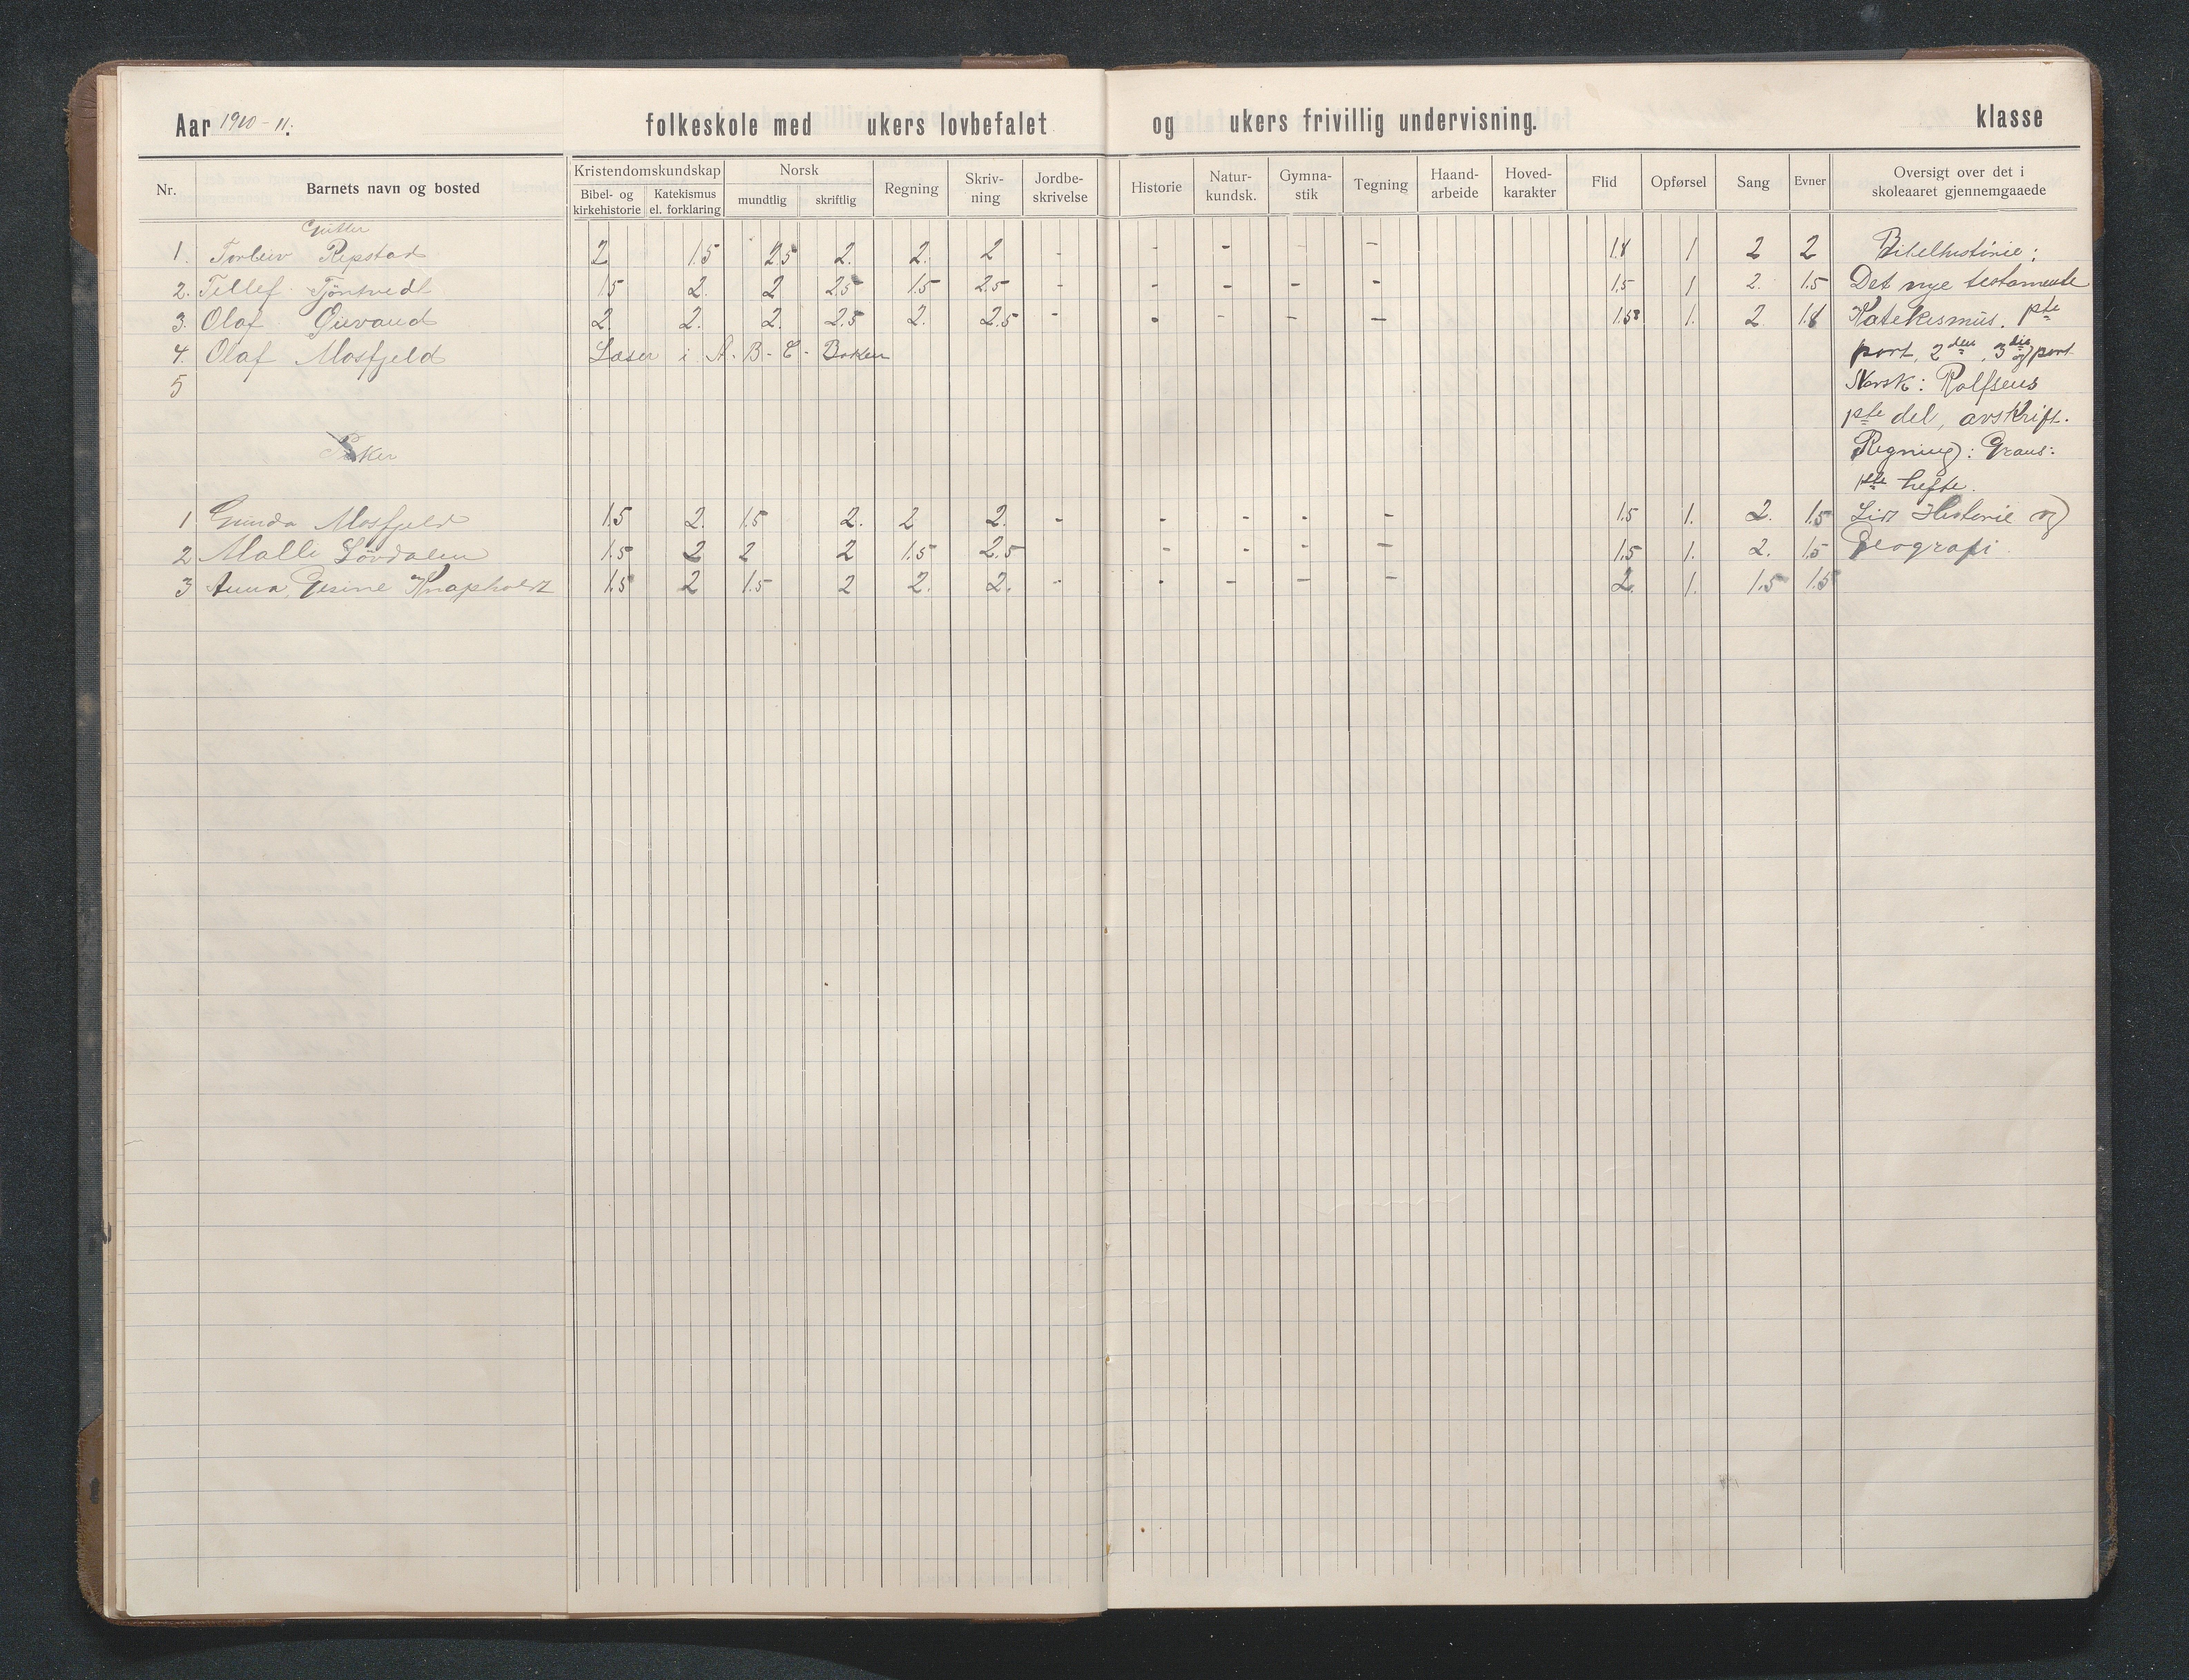 Aar 1910-11. folkeskole med ukers lovbefalet og ukers frivillig undervisning. klasse
Nr. Barnets navn og bosted Kristendomskundskap Norsk Regning Skriv-ning Jordbe-skrivelse Historie Natur-kundsk. Gymna-stik Tegning Haand-arbeide Hoved-karakter Flid Opførsel Sang Evner Oversigt over det i skoleaaret gjennemgaaede
Bibel- og kirkehistorie Katekismus el. forklaring mundtlig skriftlig
Gutter
1. Torleiv Repstad 2 1.5 2.5 2. 2. 2 - - - - - 1.8 1 2 2 Bibelhistorie:
2. Tellef Tjöntvedt 1.5 2. 2 2.5 1.5 2.5 - - - - - 1.5 1 2. 1.5 Det nye testamente
3. Olaf 2. 2. 2. 2.5 2. 2.5 - - - - - 1. 2 1.8 Katekismus. 1ste
4. Olaf Mosfjeld Læser i A-B-C-Boken part, 2den, 3die part
5 Norsk: Rolfsens
1ste del, avskrift.
Piker Regning: 
1ste hefte.
1 Gunda Mosfjeld 1.5 2. 1.5 2. 2 2. - - - - - 1.5 1. 2. 1.5 Lidt Historie og
2 Malli Lövdalen 1.5 2 2 2 1.5 2.5 - - - - 1.5 1. 2. 1.5 Geografi.
3 Anna Gesine Knapholdt 1.5 2 1.5 2 2. 2. - - - - - 2. 1. 1.5 1.5